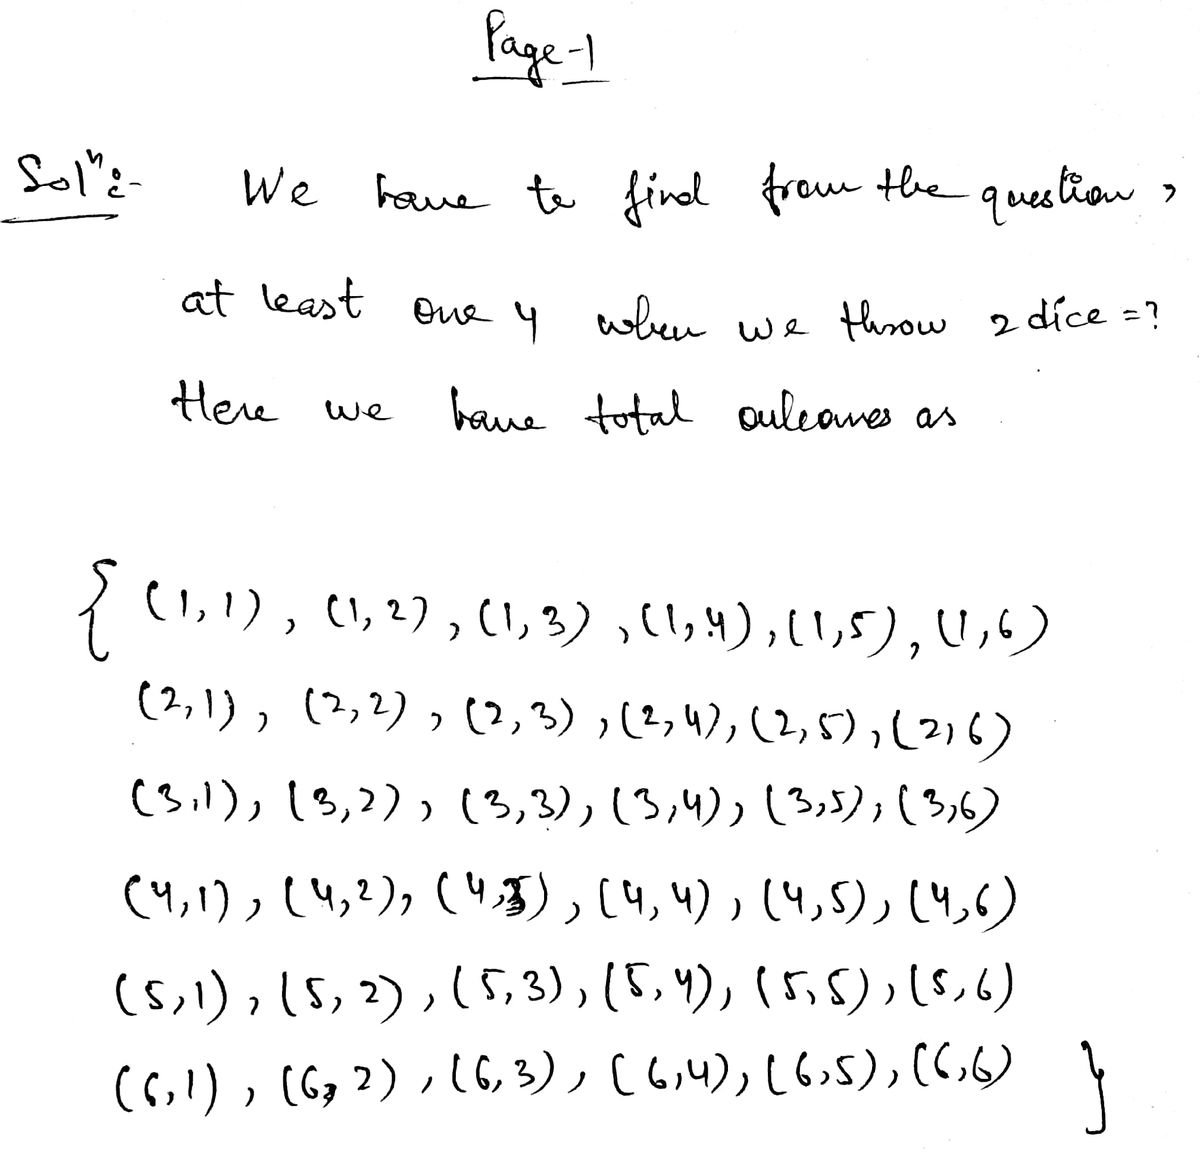 Page-1
Solⁿ:- We have to find from the question,
at least one 4 when we throw 2 dice =?
Here we have total outcomes as
{ (1,1), (1,2), (1,3), (1,4), (1,5), (1,6)
(2,1), (2,2), (2,3), (2,4), (2,5), (2,6)
(3,1), (3,2), (3,3), (3,4), (3,5), (3,6)
(4,1), (4,2), (4,3), (4,4), (4,5), (4,6)
(5,1), (5,2), (5,3), (5,4), (5,5), (5,6)
(6,1), (6,2), (6,3), (6,4), (6,5), (6,6) }